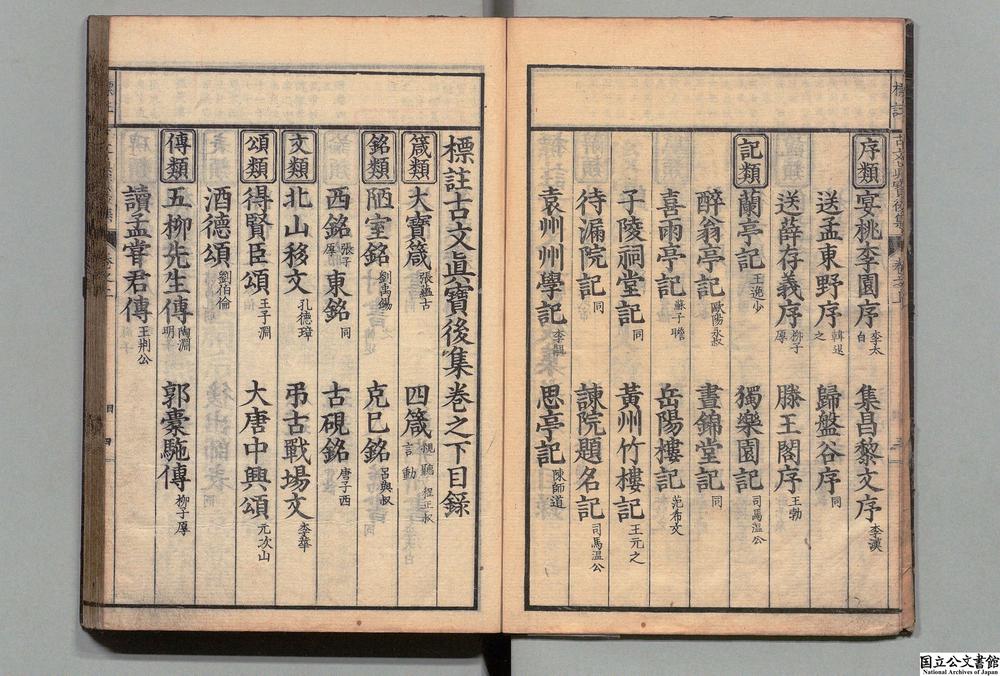 序類 宴桃李園序 李太白 集昌黎文序 李漢
送孟東野序 韓退之 歸盤谷序 同
送薛存義序 柳子厚 滕王閣序 王勃
記類 蘭亭記 王逸少 獨樂園記 司馬溫公
醉翁亭記 歐陽永叔 晝錦堂記 同
喜雨亭記 蘇子瞻 岳陽樓記 范希文
子陵祠堂記 同 黃州竹樓記 王元之
待漏院記 同 諫院題名記 司馬溫公
袁州州學記 李覯 思亭記 陳師道
標註古文眞寶後集卷之下目録
箴類 大寶箴 張蘊古 四箴 視聽言動 程正叔
銘類 陋室銘 劉禹錫 克己銘 呂與叔
西銘 張子厚 東銘 同 古硯銘 唐子西
文類 北山移文 孔德璋 弔古戰場文 李華
頌類 得賢臣頌 王子淵 大唐中興頌 元次山
酒德頌 劉伯倫
傳類 五柳先生傳 陶淵明 郭橐駞傳 柳子厚
讀孟嘗君傳 王荆公
国立公文書館
National Archives of Japan